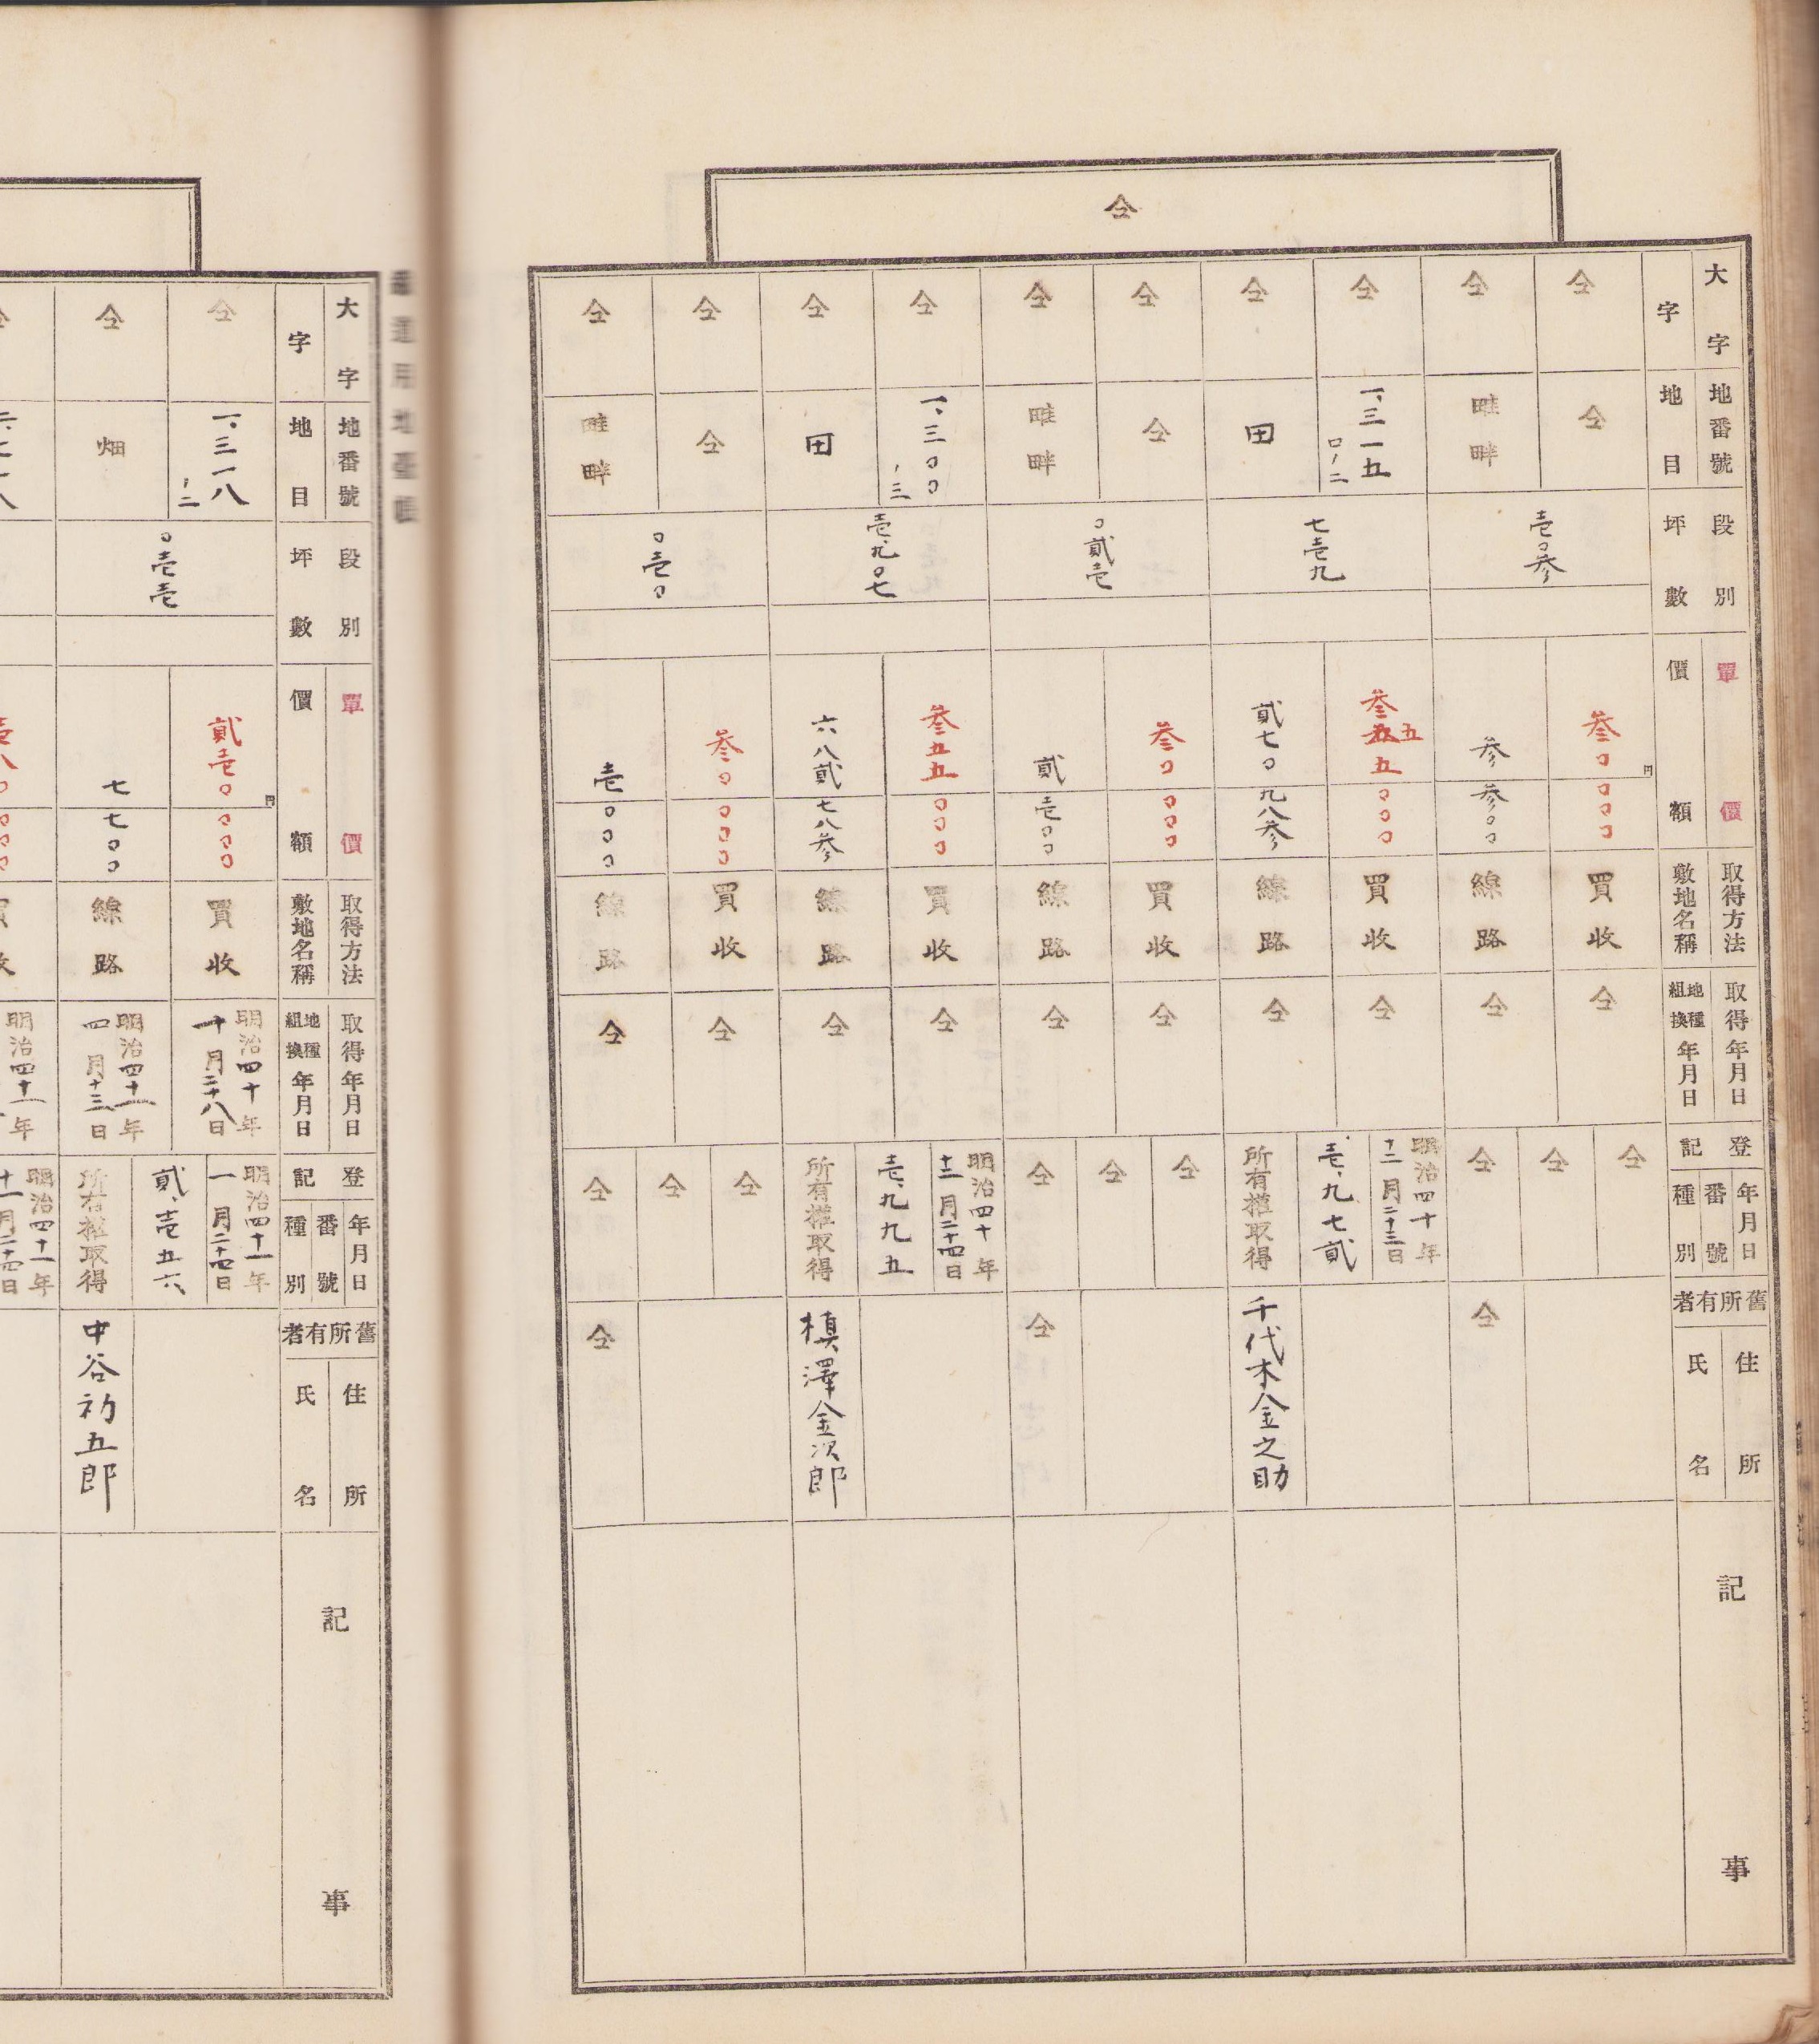 仝
大字
字
地番號
地目
段別
坪數
單價
價額
取得方法
敷地名稱
取得年月日
地種組換年月日
登記
年月日
番號
種別
舊所有者
住所
氏名
記事
仝
仝
仝
畦畔
壱〇参
円
参〇〇〇〇
参参〇〇
買收
線路
仝
仝
仝
仝
仝
仝
仝
一、三一五
ロノ二
仝
田
七壱九
参五五〇〇〇
貳七〇九八参
買收
線路
仝
仝
明治四十年
十二月二十三日
壱、九七貳
所有權取得
千代木金之助
仝
仝
仝
畦畔
〇貳壱
参〇〇〇〇
貳壱〇〇
買收
線路
仝
仝
仝
仝
仝
仝
仝
一、三〇〇
ノ三
仝
田
壱、九〇七
参五五〇〇〇
六八貳七八参
買收
線路
仝
仝
明治四十年
十二月二十四日
壱、九九五
所有權取得
槙澤金次郎
仝
仝
仝
畦畔
〇壱〇
参〇〇〇〇
壱〇〇〇
買收
線路
仝
仝
仝
仝
仝
仝
鐵道用地臺帳
大字
字
地番號
地目
段別
坪數
單價
價額
取得方法
敷地名稱
取得年月日
地種組換年月日
登記
年月日
番號
種別
舊所有者
住所
氏名
記事
仝
一、三一八
ノ二
仝
畑
〇壱壱
円
貳壱〇〇〇〇
七七〇〇
買收
線路
明治四十年
十月二十八日
明治四十一年
四月十三日
明治四十一年
一月二十四日
貳、壱五六
所有權取得
中谷初五郎
明治四十一年
明治四十一年
十一月二十四日